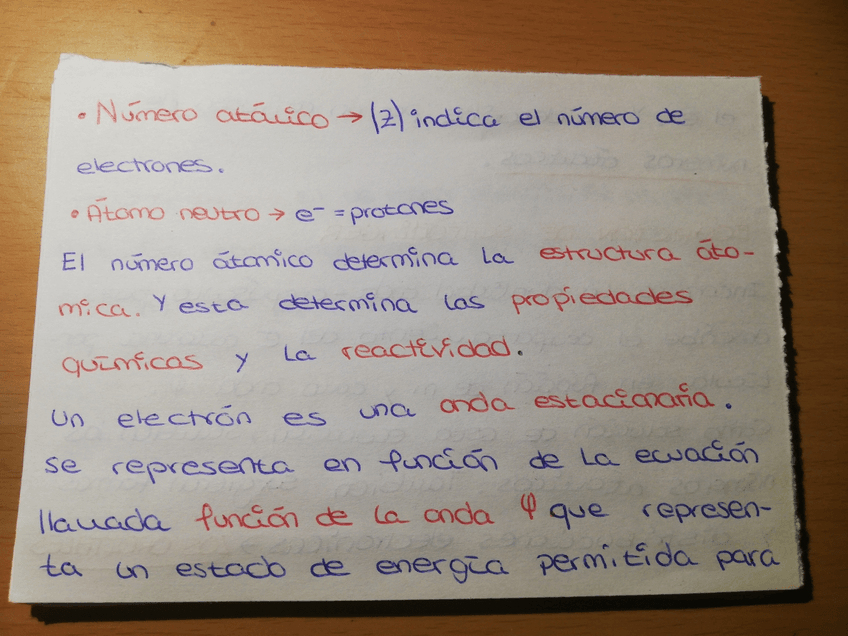 • Número atómico → (Z) indica el número de
electrones.
• Átomo neutro → e⁻ = protones
El número átomico determina la estructura áto-
mica. Y esta determina las propiedades
químicas y la reactividad.
Un electrón es una onda estacionaria.
se representa en función de la ecuación
llamada función de la onda φ que represen-
ta un estado de energía permitida para